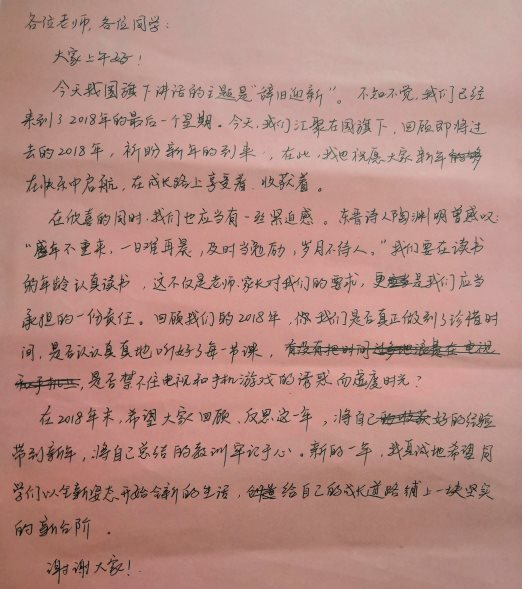 各位老师,各位同学:
大家上午好!
今天我国旗下讲话的主题是“辞旧迎新”。不知不觉,我们已经
来到了2018年的最后一个星期。今天,我们汇聚在国旗下,回顾即将过
去的2018年,祈盼新年的到来,在此,我也祝愿大家新年
在快乐中启航,在成长路上享受着、收获着。
在欣喜的同时,我们也应当有一丝紧迫感。东晋诗人陶渊明曾感叹:
“盛年不重来,一日难再晨,及时当勉励,岁月不待人。”我们要在读书
的年龄认真读书,这不仅是老师、家长对我们的要求,更是我们应当
承担的一份责任。回顾我们的2018年,你我们是否真正做到了珍惜时
间,是否认认真真地听好了每一节课,有没有把时间过多地浪费在电视
和手机上,是否禁不住电视和手机游戏的诱惑而虚度时光?
在2018年末,希望大家回顾、反思这一年,将自己好的经验
带到新年,将自己总结的教训牢记于心。新的一年,我真诚地希望同
学们以全新姿态开始全新的生活,给自己的成长道路铺上一块坚实
的新台阶。
谢谢大家!